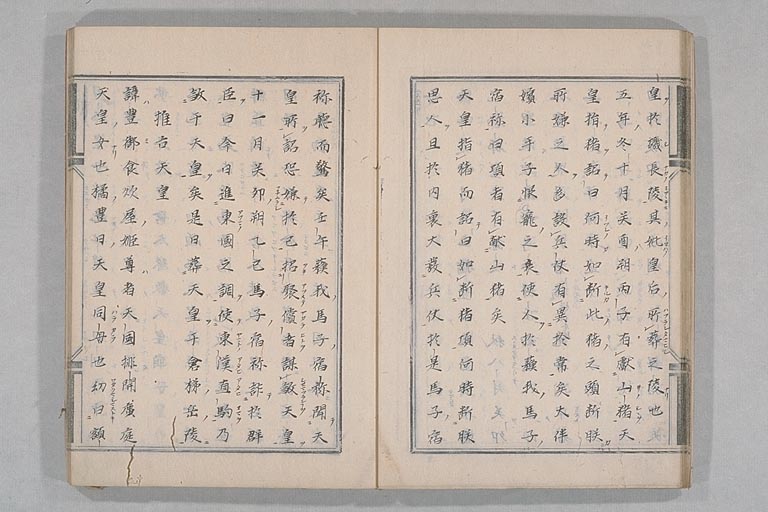 皇於磯長陵其妣皇后所葬之陵也
五年冬十月癸酉朔丙子有献山猪天
皇指猪詔曰何時如断此猪之頭断朕
所嫌之人多設兵仗有異於常矣大伴
嬪小手子恨寵之衰使人於蘇我馬子
宿祢曰頃者有献山猪矣
天皇指猪而詔曰如断猪頭何時断朕
思人且於内裏大發兵仗於是馬子宿
祢聴而驚矣壬午蘇我馬子宿祢聞天
皇所詔恐嫌於己招聚儻者謀殺天皇
十一月癸卯朔乙巳馬子宿祢詐於群
臣曰今日進東國之調使東漢直駒乃
殺于天皇矣是日葬天皇于倉梯岳陵
推古天皇
諱豊御食炊屋姫尊者天國排開廣庭
天皇女也橘豊日天皇同母也幼曰額